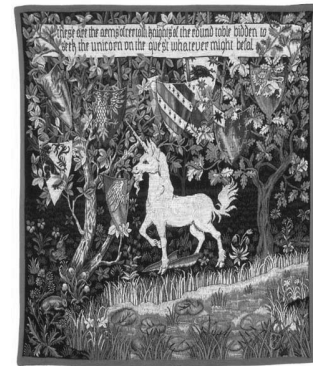 these are the arms of certain knights of the round table bidden to
seek the unicorn on the quest whatever might befal